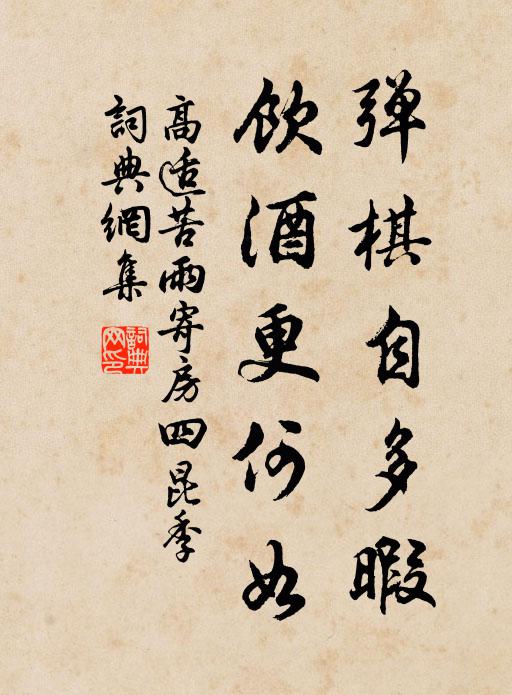 弹棋自多暇
饮酒更何如
高适苦雨寄房四昆季
詞典網集
詞典网印